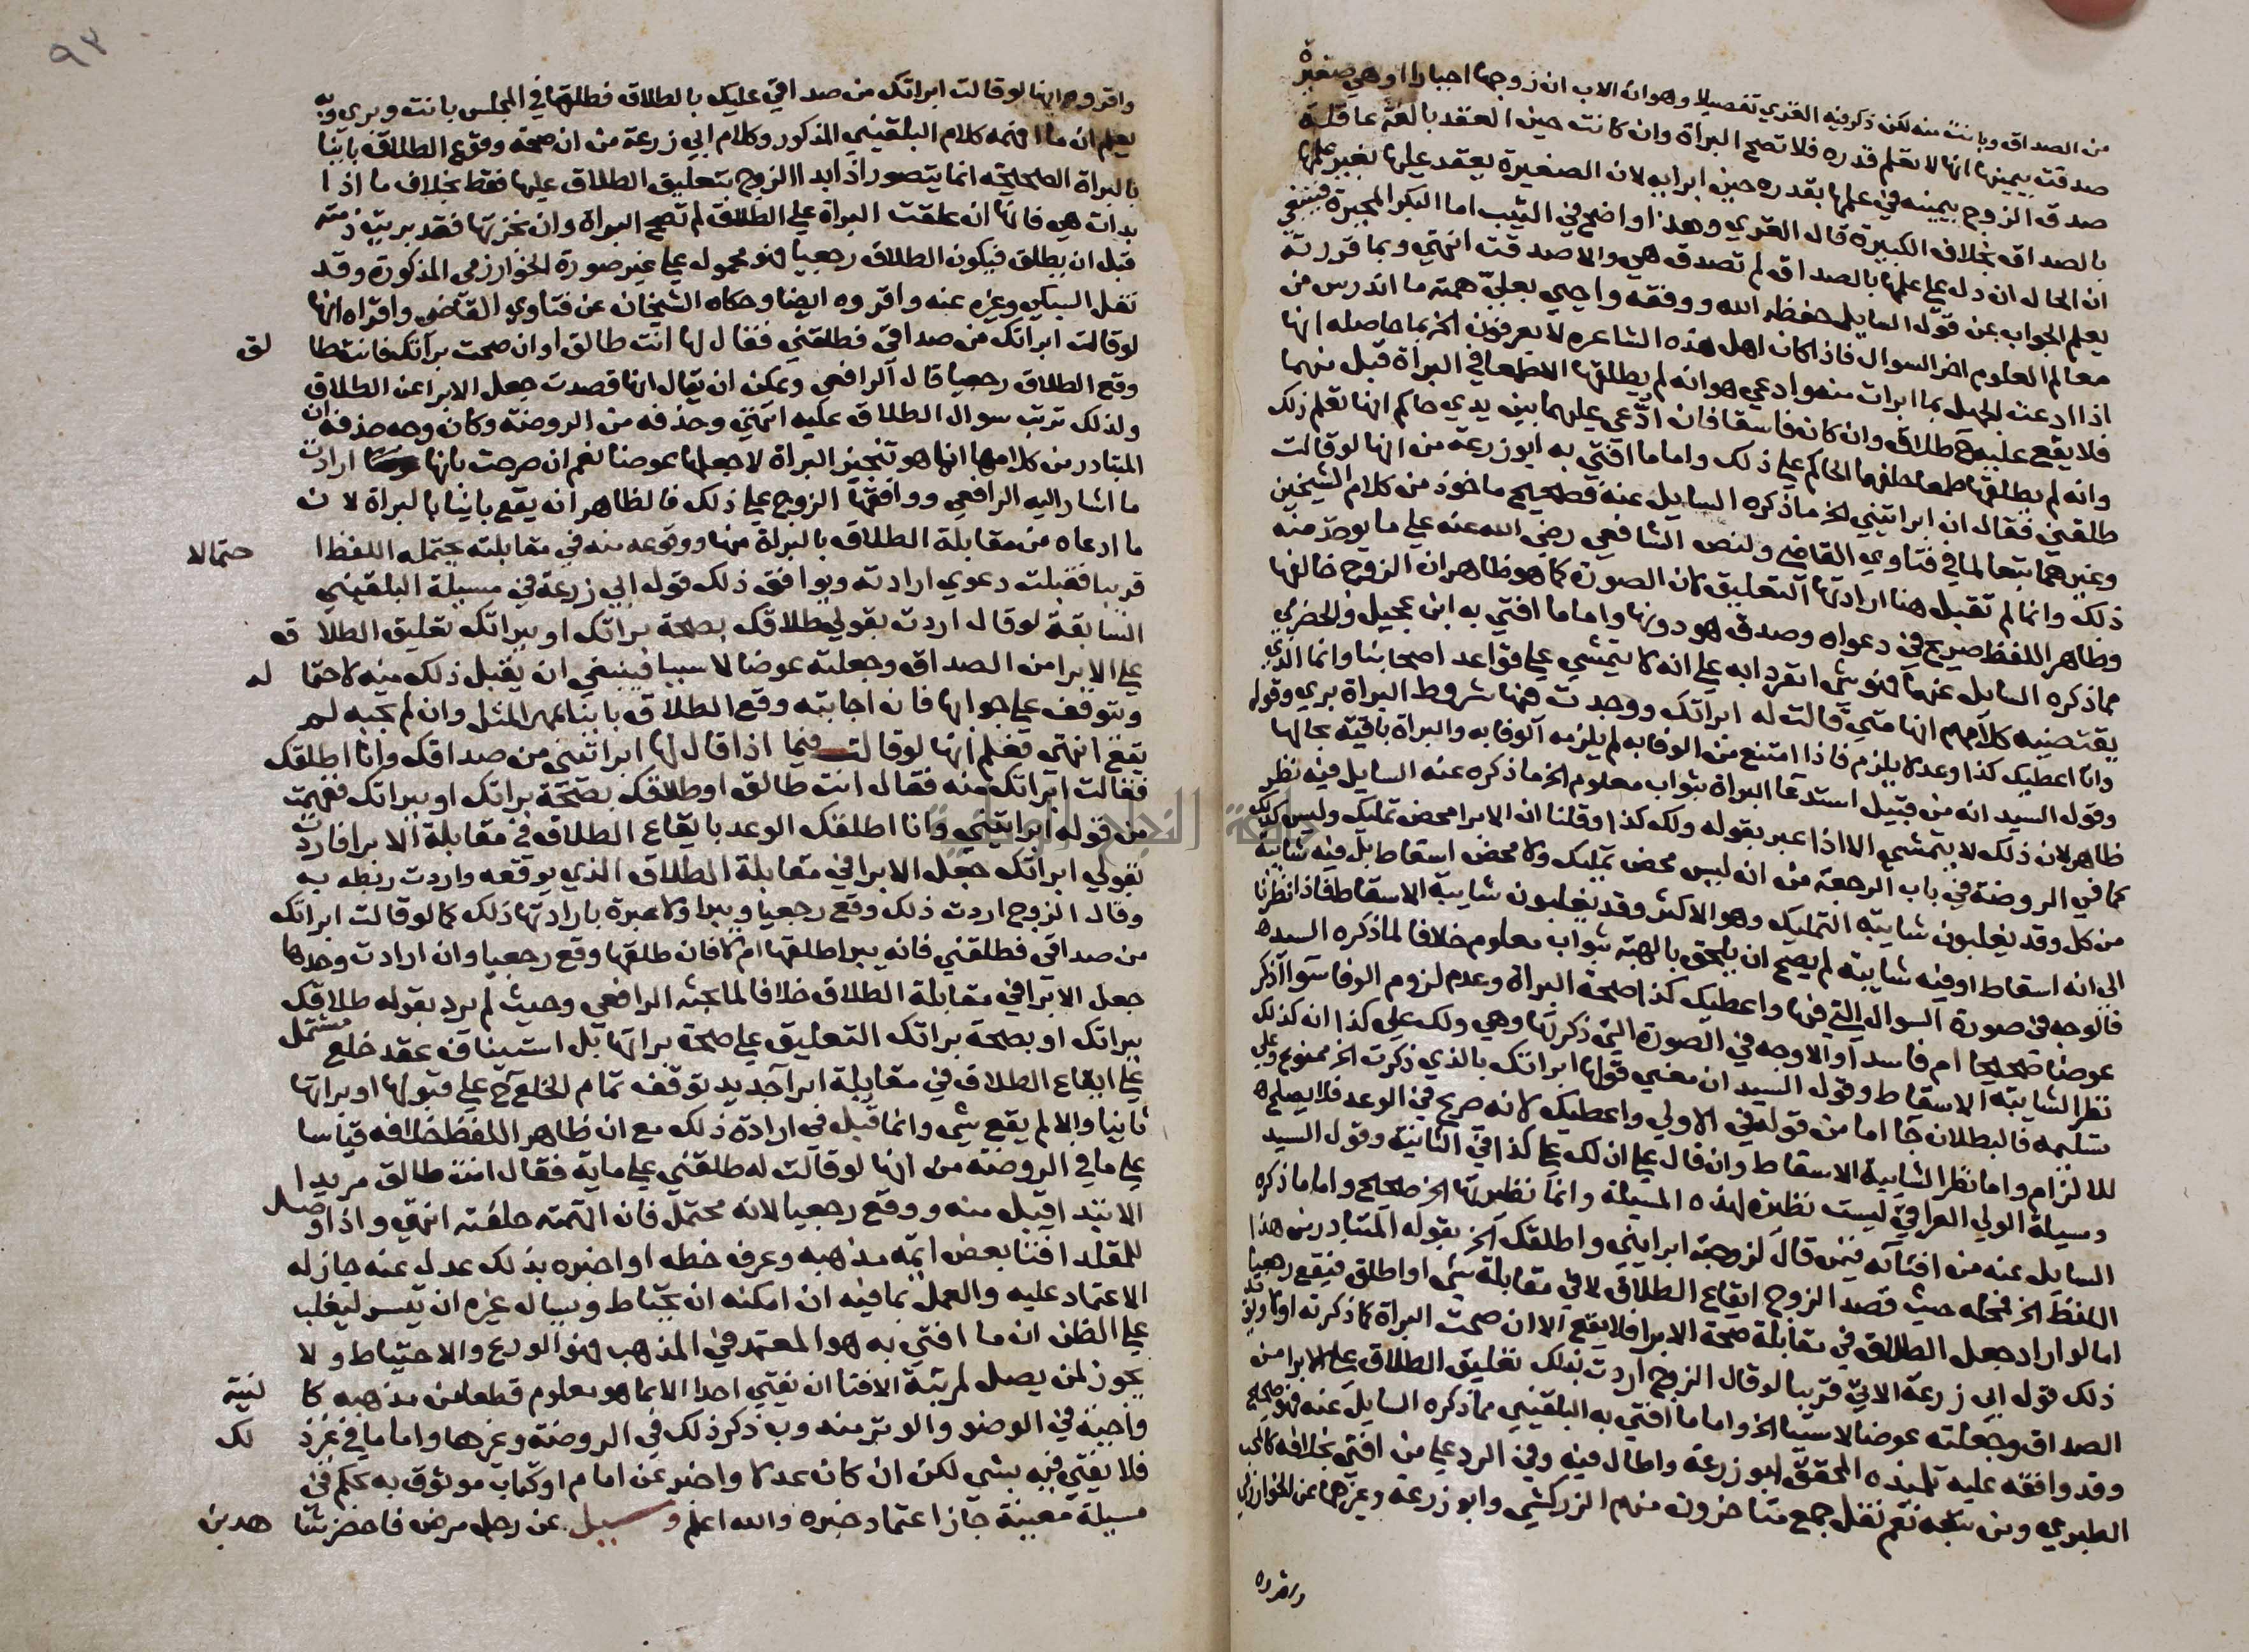 من الصداق وبانت منه لكن ذكر فيه الغزي تفصيلا وهو ان الاب ان زوجها اجبارا او هي صغيرة
صدقت بيمينها انها لا تعلم قدره فلا تصح البراة وان كانت حين العقد بالغة عاقلة
صدق الزوج بيمينه في علمها بقدره حين ابرايه لان الصغيرة يعقد عليها بغير علمها
بالصداق بخلاف الكبيرة قال الغزي وهذا واضح في الثيب اما البكر المجبرة فينبغي
ان الحال ان دل على علمها بالصداق لم تصدق هي والا صدقت انتهي وبما قررته
يعلم الجواب عن قول السايل حفظه الله ووفقه واحيى بعليّ همته ما اندرس من
معالم العلوم اخر السوال فاذا كان اهل هذه الشاعره لا يعرفون الخ بما حاصله انها
اذا ادعت الجهل بما ابرات منه وادعي هو انه لم يطلقها الا طمعا في البراة قبل منهما
فلا يقع عليه طلاق وان كان فاسقا فان ادّعي عليهما بين يدي حاكم انها تعلم ذلك
وانه لم يطلقها طمعا حلفهما الحاكم علي ذلك واما ما افتي به ابو زرعة من انها لو قالت
طلقني فقال ان ابراتيني الخ ما ذكره السايل عنه فصحيح ماخوذ من كلام الشيخين
وغيرهما تبعا لما في فتاوي القاضي ولنص الشافعي رضي الله عنه علي ما يوخذ منه
ذلك وانما لم تقبل هنا ارادتها التعليق لان الصورة كما هو ظاهر ان الزوج خالفها
وظاهر اللفظ صريح في دعواه وصدق هو دونها واما ما افتي به ابن عجيل والحضرمي
مما ذكره السايل عنهما فهو شي انفردا به علي انه لا يتمشي علي قواعد اصحابنا وانما الذي
يقتضيه كلامهم انها متي قالت له ابراتك ووجدت فيها شروط البراة بري وقوله
وانا اعطيك كذا وعد لا يلزم فاذا امتنع من الوفا به لم يلزمه الوفا به والبراة باقية بحالها
وقول السيد انه من قبيل استدعا البراة بثواب معلوم الخ ما ذكره عنه السايل فيه نظر
ظاهر لان ذلك لا يتمشي الا اذا عبر بقوله ولك كذا وقلنا ان الابرا محض تمليك وليس كذلك
كما في الروضة في باب الرجعة من انه ليس محض تمليك ولا محض اسقاط بل فيه شايبة
من كل وقد يغلبون شايبة التمليك وهو الاكثر وقد يغلبون شايبة الاسقاط فاذا نظرنا
الي انه اسقاط او فيه شايبته لم يصح ان يلحق بالهبة بثواب معلوم خلافا لما ذكره السيد
فالوجه في صورة السوال التي فيها واعطيك كذا صحة البراة وعدم لزوم الوفا سوا اذكر
عوضا صحيحا ام فاسدا والاوجه في الصورة التي ذكرتها وهي ولك علي كذا انه كذلك
نظرا لشايبة الاسقاط وقول السيد ان معني قولها ابراتك بالذي ذكرت الخ ممنوع وعلي
تسليمه فالبطلان جا اما من قوله في الاولي واعطيك لانه صريح في الوعد فلا يصلح
للالزام واما نظرا لشايبة الاسقاط وان قال علي ان لك علي كذا في الثانية وقول السيد
ومسيلة الولي العراقي ليست نظيرة لهذه المسيلة وانما نظيرتها الخ صحيح واما ما ذكره
السايل عنه من افتائه فيمن قال لزوجته ابرايني واطلقك الخ بقوله المتبادر من هذا
اللفظ الخ فمحله حيث قصد الزوج ايقاع الطلاق لا في مقابلة شي او اطلق فيقع رجعيا
اما لو اراد جعل الطلاق في مقابلة صحة الابرا فلا يقع الا ان صحت البراة كما ذكرته
ذلك قول ابي زرعة الاتي قريبا لو قال الزوج اردت بذلك تعليق الطلاق علي الابرا من
الصداق وجعلته عوضا لا سببا الخ واما ما افتي به البلقيني مما ذكره السايل عنه فهو صحيح
وقد وافقه عليه تلميذه المحقق ابو زرعة واطال فيه وفي الرد علي من افتي بخلافه كالمحب
الطبري ومن تبعه نعم نقل جمع متاخرون منهم الزركشي وابو زرعة وغيرهما عن الخوارزمي
واقروه
٩٣
واقروه انها لو قالت ابراتك من صداقي عليك بالطلاق فطلقها في المجلس بانت وبري وبه
يعلم ان ما افهمه كلام البلقيني المذكور وكلام ابي زرعة من ان صحة وقوع الطلاق باينا
بالبراة الصحيحة انما يتصور اذا ابدا الزوج بتعليق الطلاق عليها فقط بخلاف ما اذا
بدات هي فانها ان علقت البراة علي الطلاق لم تصح البراة وان نجزتها فقد بريت ذمته
قبل ان يطلق فيكون الطلاق رجعيا فهو محمول علي غير صورة الخوارزمي المذكورة وقد
نقل السبكي وغيره عنه واقروه ايضا وحكاه الشيخان عن فتاوي القاضي واقراه انها
لو قالت ابراتك من صداقي فطلقني فقال لها انت طالق او ان صحت براتك فانت طالق
وقع الطلاق رجعيا قال الرافعي ويمكن ان يقال انها قصدت جعل الابرا عن الطلاق
ولذلك ترتب سوال الطلاق عليه انتهي وحذفه من الروضة وكان وجه حذفه ان
المتبادر من كلامها انما هو تنجيز البراة لا جعلها عوضا نعم ان صرحت بانها ارادت
ما اشار اليه الرافعي ووافقها الزوج علي ذلك فالظاهر انه يقع باينا بالبراة لان
ما ادعاه من مقابلة الطلاق بالبراة منها ووقوعه منه في مقابلته يحتمله اللفظ احتمالا
قريبا فقبلت دعوي ارادته ويوافق ذلك قول ابي زرعة في مسيلة البلقيني
السابقة لو قال اردت بقولي طلاقك بصحة براتك او ببراتك تعليق الطلاق
علي الابرا من الصداق وجعلته عوضا لا سببا فينبغي ان يقبل ذلك منه لاحتماله
ويتوقف علي جوابها فان اجابته وقع الطلاق باينا بمهر المثل وان لم تجبه لم
يقع انتهي فعلم انها لو قالت فيما اذا قال لها ابراتني من صداقك وانا اطلقك
فقالت ابراتك منه فقال انت طالق او طلاقك بصحة براتك او ببراتك ففهمت
من قوله ابرايتيني وانا اطلقك الوعد بايقاع الطلاق في مقابلة الابرا فاردت
بقولي ابراتك جعل الابرا في مقابلة الطلاق الذي يوقعه واردت ربطه به
وقال الزوج اردت ذلك وقع رجعيا ويبرا ولا عبرة بارادتها ذلك كما لو قالت ابراتك
من صداقي فطلقني فانه يبرا طلقها ام لا فان طلقها وقع رجعيا وان ارادت وحدها
جعل الابرا في مقابلة الطلاق خلافا لما بحثه الرافعي وحيث لم يرد بقوله طلاقك
ببراتك او بصحة براتك التعليق علي صحة براتها بل استيناف عقد خلع مشتمل
علي ايقاع الطلاق في مقابلة ابرا جديد توقف تمام الخلع ح علي قبولها او براتها
ثانيا والا لم يقع شي وانما قبل في ارادة ذلك مع ان ظاهر اللفظ خلافه قياسا
علي ما في الروضة من انها لو قالت له طلقني علي ماية فقال انت طالق مريدا
الابتدا قبل منه ووقع رجعيا لانه محتمل فان اتهمته حلفته انتهي واذا وصل
للمقلد افتا بعض ايمة مذهبه وعرف خطه او اخبره بذلك عدل عنه جاز له
الاعتماد عليه والعمل بما فيه ان امكنه ان يحتاط ويسال غيره ان تيسر ليغلب
علي الظن ان ما افتي به هو المعتمد في المذهب فهو الورع والاحتياط ولا
يجوز لمن يصل لمرتبة الافتا ان يفتي احدا الا بما هو معلوم قطعا من مذهبه كالنية
واجبة في الوضو والوتر مندوب ذكر ذلك في الروضة وغيرها واما ما في غير ذلك
فلا يفتي فيه بشي لكن ان كان عدلا واخبر عن امام او كتاب موثوق به بحكم في
مسيلة معينة جاز اعتماد خبره والله اعلم وسييل عن رجل مرض فاحضر شاهدين